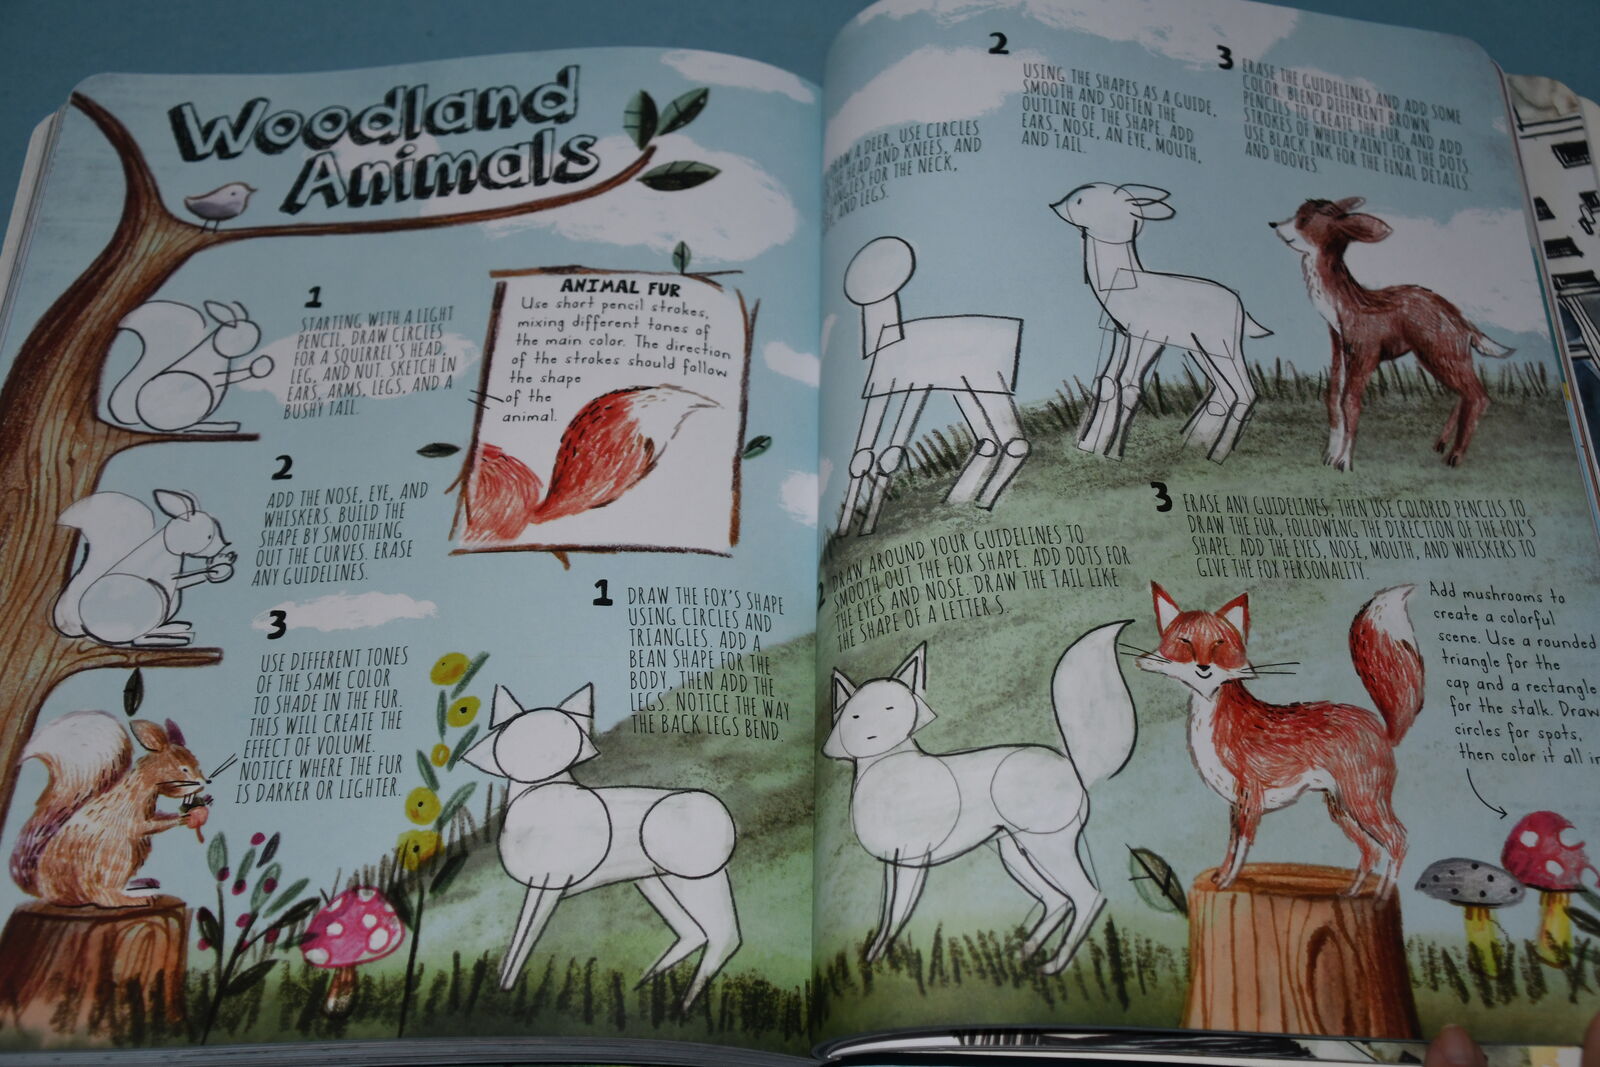 Woodland
Animals
1
STARTING WITH A LIGHT
PENCIL, DRAW CIRCLES
FOR A SQUIRREL'S HEAD,
LEG, AND NUT. SKETCH IN
EARS, ARMS, LEGS, AND A
BUSHY TAIL.
2
ADD THE NOSE, EYE, AND
WHISKERS. BUILD THE
SHAPE BY SMOOTHING
OUT THE CURVES. ERASE
ANY GUIDELINES.
3
USE DIFFERENT TONES
OF THE SAME COLOR
TO SHADE IN THE FUR.
THIS WILL CREATE THE
EFFECT OF VOLUME.
NOTICE WHERE THE FUR
IS DARKER OR LIGHTER.
ANIMAL FUR
Use short pencil strokes,
mixing different tones of
the main color. The direction
of the strokes should follow
the shape
of the
animal.
1
DRAW THE FOX'S SHAPE
USING CIRCLES AND
TRIANGLES. ADD A
BEAN SHAPE FOR THE
BODY, THEN ADD THE
LEGS. NOTICE THE WAY
THE BACK LEGS BEND.
A DEER, USE CIRCLES
HEAD AND KNEES, AND
FOR THE NECK,
AND LEGS.
2
USING THE SHAPES AS A GUIDE,
SMOOTH AND SOFTEN THE
OUTLINE OF THE SHAPE. ADD
EARS, NOSE, AN EYE, MOUTH,
AND TAIL.
3
ERASE THE GUIDELINES AND ADD SOME
COLOR. BLEND DIFFERENT BROWN
PENCILS TO CREATE THE FUR, AND ADD
STROKES OF WHITE PAINT FOR THE DOTS.
USE BLACK INK FOR THE FINAL DETAILS
AND HOOVES.
2
DRAW AROUND YOUR GUIDELINES TO
SMOOTH OUT THE FOX SHAPE. ADD DOTS FOR
THE EYES AND NOSE. DRAW THE TAIL LIKE
THE SHAPE OF A LETTER S.
3
ERASE ANY GUIDELINES, THEN USE COLORED PENCILS TO
DRAW THE FUR, FOLLOWING THE DIRECTION OF THE FOX'S
SHAPE. ADD THE EYES, NOSE, MOUTH, AND WHISKERS TO
GIVE THE FOX PERSONALITY.
Add mushrooms to
create a colorful
scene. Use a rounded
triangle for the
cap and a rectangle
for the stalk. Draw
circles for spots,
then color it all in